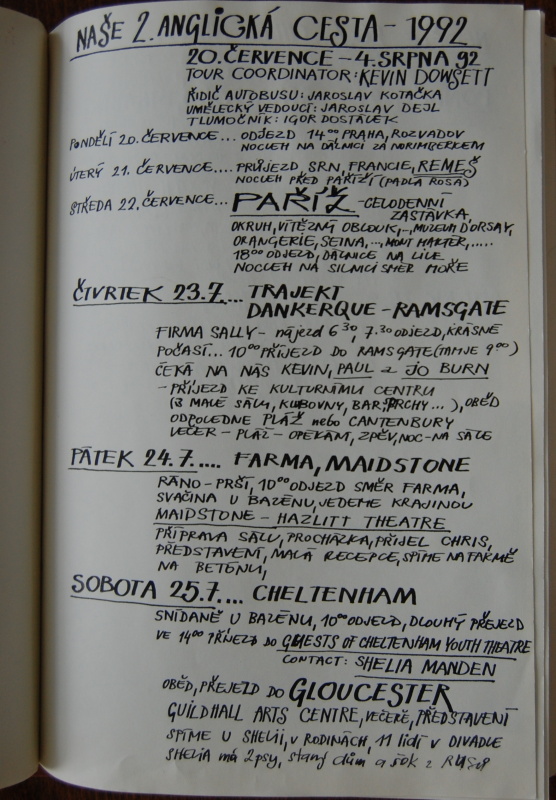 NAŠE 2. ANGLICKÁ CESTA - 1992
20. ČERVENCE - 4. SRPNA 92
TOUR COORDINATOR: KEVIN DOWSETT
ŘIDIČ AUTOBUSU: JAROSLAV KOTAČKA
UMĚLECKÝ VEDOUCÍ: JAROSLAV DEJL
TLUMOČNÍK: IGOR DOSTÁLEK
PONDĚLÍ 20. ČERVENCE... ODJEZD 14⁰⁰ PRAHA, ROZVADOV
NOCLEH NA DÁLNICI ZA NORIMBERKEM
ÚTERÝ 21. ČERVENCE.... PRŮJEZD SRN, FRANCIE, REMEŠ
NOCLEH PŘED PAŘÍŽÍ (PADLA ROSA)
STŘEDA 22. ČERVENCE... PAŘÍŽ - CELODENNÍ
ZASTÁVKA,
OKRUH, VÍTĚZNÝ OBLOUK, .., MUZEUM D'ORSAY,
ORANGERIE, SEINA, ..., MONT MARTER, .....
18⁰⁰ ODJEZD, DÁLNICE NA LILE
NOCLEH NA SILNICI SMĚR MOŘE
ČTVRTEK 23.7.... TRAJEKT
DANKERQUE - RAMSGATE
FIRMA SALLY - nájezd 6³⁰, 7.³⁰ ODJEZD, KRÁSNÉ
POČASÍ... 10⁰⁰ PŘÍJEZD DO RAMSGATE (TAM JE 9⁰⁰)
ČEKÁ NA NÁS KEVIN, PAUL a JO BURN
- PŘÍJEZD KE KULTURNÍMU CENTRU
(3 MALÉ SÁLY, KLUBOVNY, BAR, SPRCHY ...), OBĚD
ODPOLEDNE PLÁŽ nebo CANTENBURY
VEČER - PLÁŽ - OPÉKÁNÍ, ZPĚV, NOC - NA SÁLE
PÁTEK 24.7. .... FARMA, MAIDSTONE
RÁNO - PRŠÍ, 10⁰⁰ ODJEZD SMĚR FARMA,
SVAČINA U BAZÉNU, JEDEME KRAJINOU
MAIDSTONE - HAZLITT THEATRE
PŘÍPRAVA SÁLU, PROCHÁZKA, PŘIJEL CHRIS,
PŘEDSTAVENÍ, MALÁ RECEPCE, SPÍME NA FARMĚ
NA BETONU,
SOBOTA 25.7.... CHELTENHAM
SNÍDANĚ U BAZÉNU, 10⁰⁰ ODJEZD, DLOUHÝ PŘEJEZD
VE 14⁰⁰ PŘÍJEZD DO GUESTS OF CHELTENHAM YOUTH THEATRE
CONTACT: SHELIA MANDEN
OBĚD, PŘEJEZD DO GLOUCESTER
GUILDHALL ARTS CENTRE, VEČEŘE, PŘEDSTAVENÍ
SPÍME U SHELII, V RODINÁCH, 11 LIDÍ V DIVADLE
SHELIA má 2 psy, starý dům a šok z